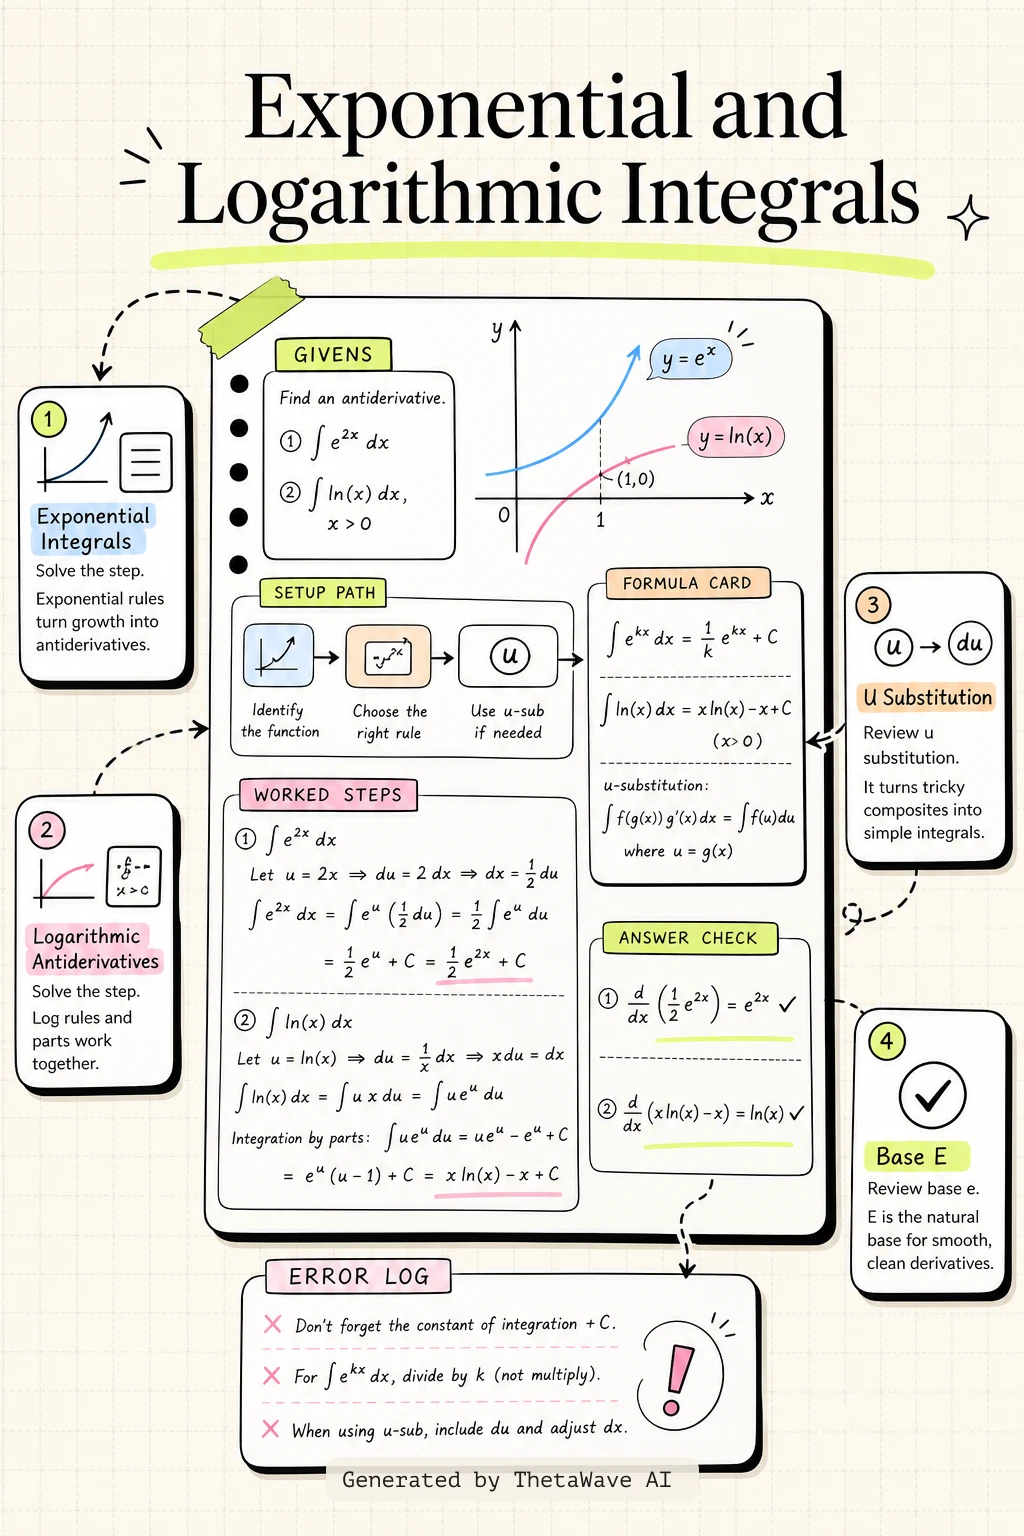 Exponential and
Logarithmic Integrals
GIVENS
Find an antiderivative.
① ∫ e^{2x} dx
② ∫ ln(x) dx,
x > 0
y
y = e^x
y = ln(x)
(1,0)
x
0
1
1
Exponential
Integrals
Solve the step.
Exponential rules
turn growth into
antiderivatives.
SETUP PATH
u
Identify
the function
Choose the
right rule
Use u-sub
if needed
FORMULA CARD
∫ e^{kx} dx = 1/k e^{kx} + C
∫ ln(x) dx = x ln(x) − x + C
(x > 0)
u-substitution:
∫ f(g(x)) g'(x) dx = ∫ f(u) du
where u = g(x)
3
u → du
U Substitution
Review u
substitution.
It turns tricky
composites into
simple integrals.
2
x > c
Logarithmic
Antiderivatives
Solve the step.
Log rules and
parts work
together.
WORKED STEPS
① ∫ e^{2x} dx
Let u = 2x ⇒ du = 2 dx ⇒ dx = 1/2 du
∫ e^{2x} dx = ∫ e^u (1/2 du) = 1/2 ∫ e^u du
= 1/2 e^u + C = 1/2 e^{2x} + C
② ∫ ln(x) dx
Let u = ln(x) ⇒ du = 1/x dx ⇒ x du = dx
∫ ln(x) dx = ∫ u x du = ∫ u e^u du
Integration by parts: ∫ u e^u du = u e^u − e^u + C
= e^u (u − 1) + C = x ln(x) − x + C
ANSWER CHECK
① d/dx (1/2 e^{2x}) = e^{2x} ✓
② d/dx (x ln(x) − x) = ln(x) ✓
4
Base E
Review base e.
E is the natural
base for smooth,
clean derivatives.
ERROR LOG
✕ Don't forget the constant of integration + C.
✕ For ∫ e^{kx} dx, divide by k (not multiply).
✕ When using u-sub, include du and adjust dx.
!
Generated by ThetaWave AI